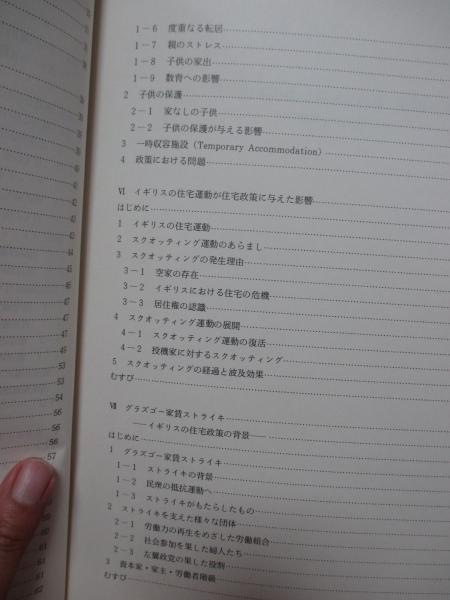 1－6　度重なる転居
1－7　親のストレス
1－8　子供の家出
1－9　教育への影響
2　子供の保護
2－1　家なしの子供
2－2　子供の保護が与える影響
3　一時収容施設（Temporary Accommodation）
4　政策における問題
Ⅵ　イギリスの住宅運動が住宅政策に与えた影響
はじめに
1　イギリスの住宅運動
2　スクオッティング運動のあらまし
3　スクオッティングの発生理由
3－1　空家の存在
3－2　イギリスにおける住宅の危機
3－3　居住権の認識
4　スクオッティング運動の展開
4－1　スクオッティング運動の復活
4－2　投機家に対するスクオッティング
5　スクオッティングの経過と波及効果
むすび
Ⅶ　グラズゴー家賃ストライキ
――イギリスの住宅政策の背景――
はじめに
1　グラズゴー家賃ストライキ
1－1　ストライキの背景
1－2　民衆の抵抗運動へ
1－3　ストライキがもたらしたもの
2　ストライキを支えた様々な団体
2－1　労働力の再生をめざした労働組合
2－2　社会参加を果した婦人たち
2－3　左翼政党の果した役割
3　資本家・家主・労働者階級
むすび
42
42
44
45
47
47
47
49
53
53
54
56
56
56
57
60
61
62